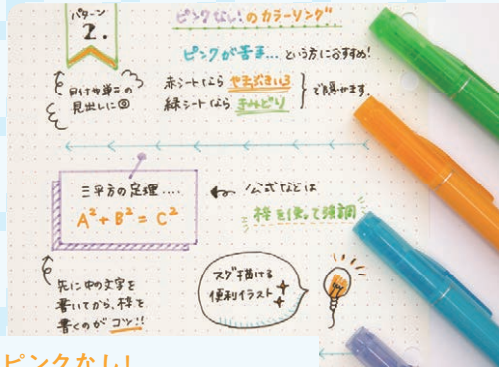 パターン
2.
ピンクなし!のカラーリング
ピンクが苦手… という方におすすめ!
赤シートなら やまぶきいろ
緑シートなら きみどり
で消せます。
日付や第二の
見出しに◎
三平方の定理....
A²+B²=C²
公式などは
枠を使って強調
先に中の文字を
書いてから、枠を
書くのがコツ!!
スグ描ける
便利イラスト
ピンクなし!